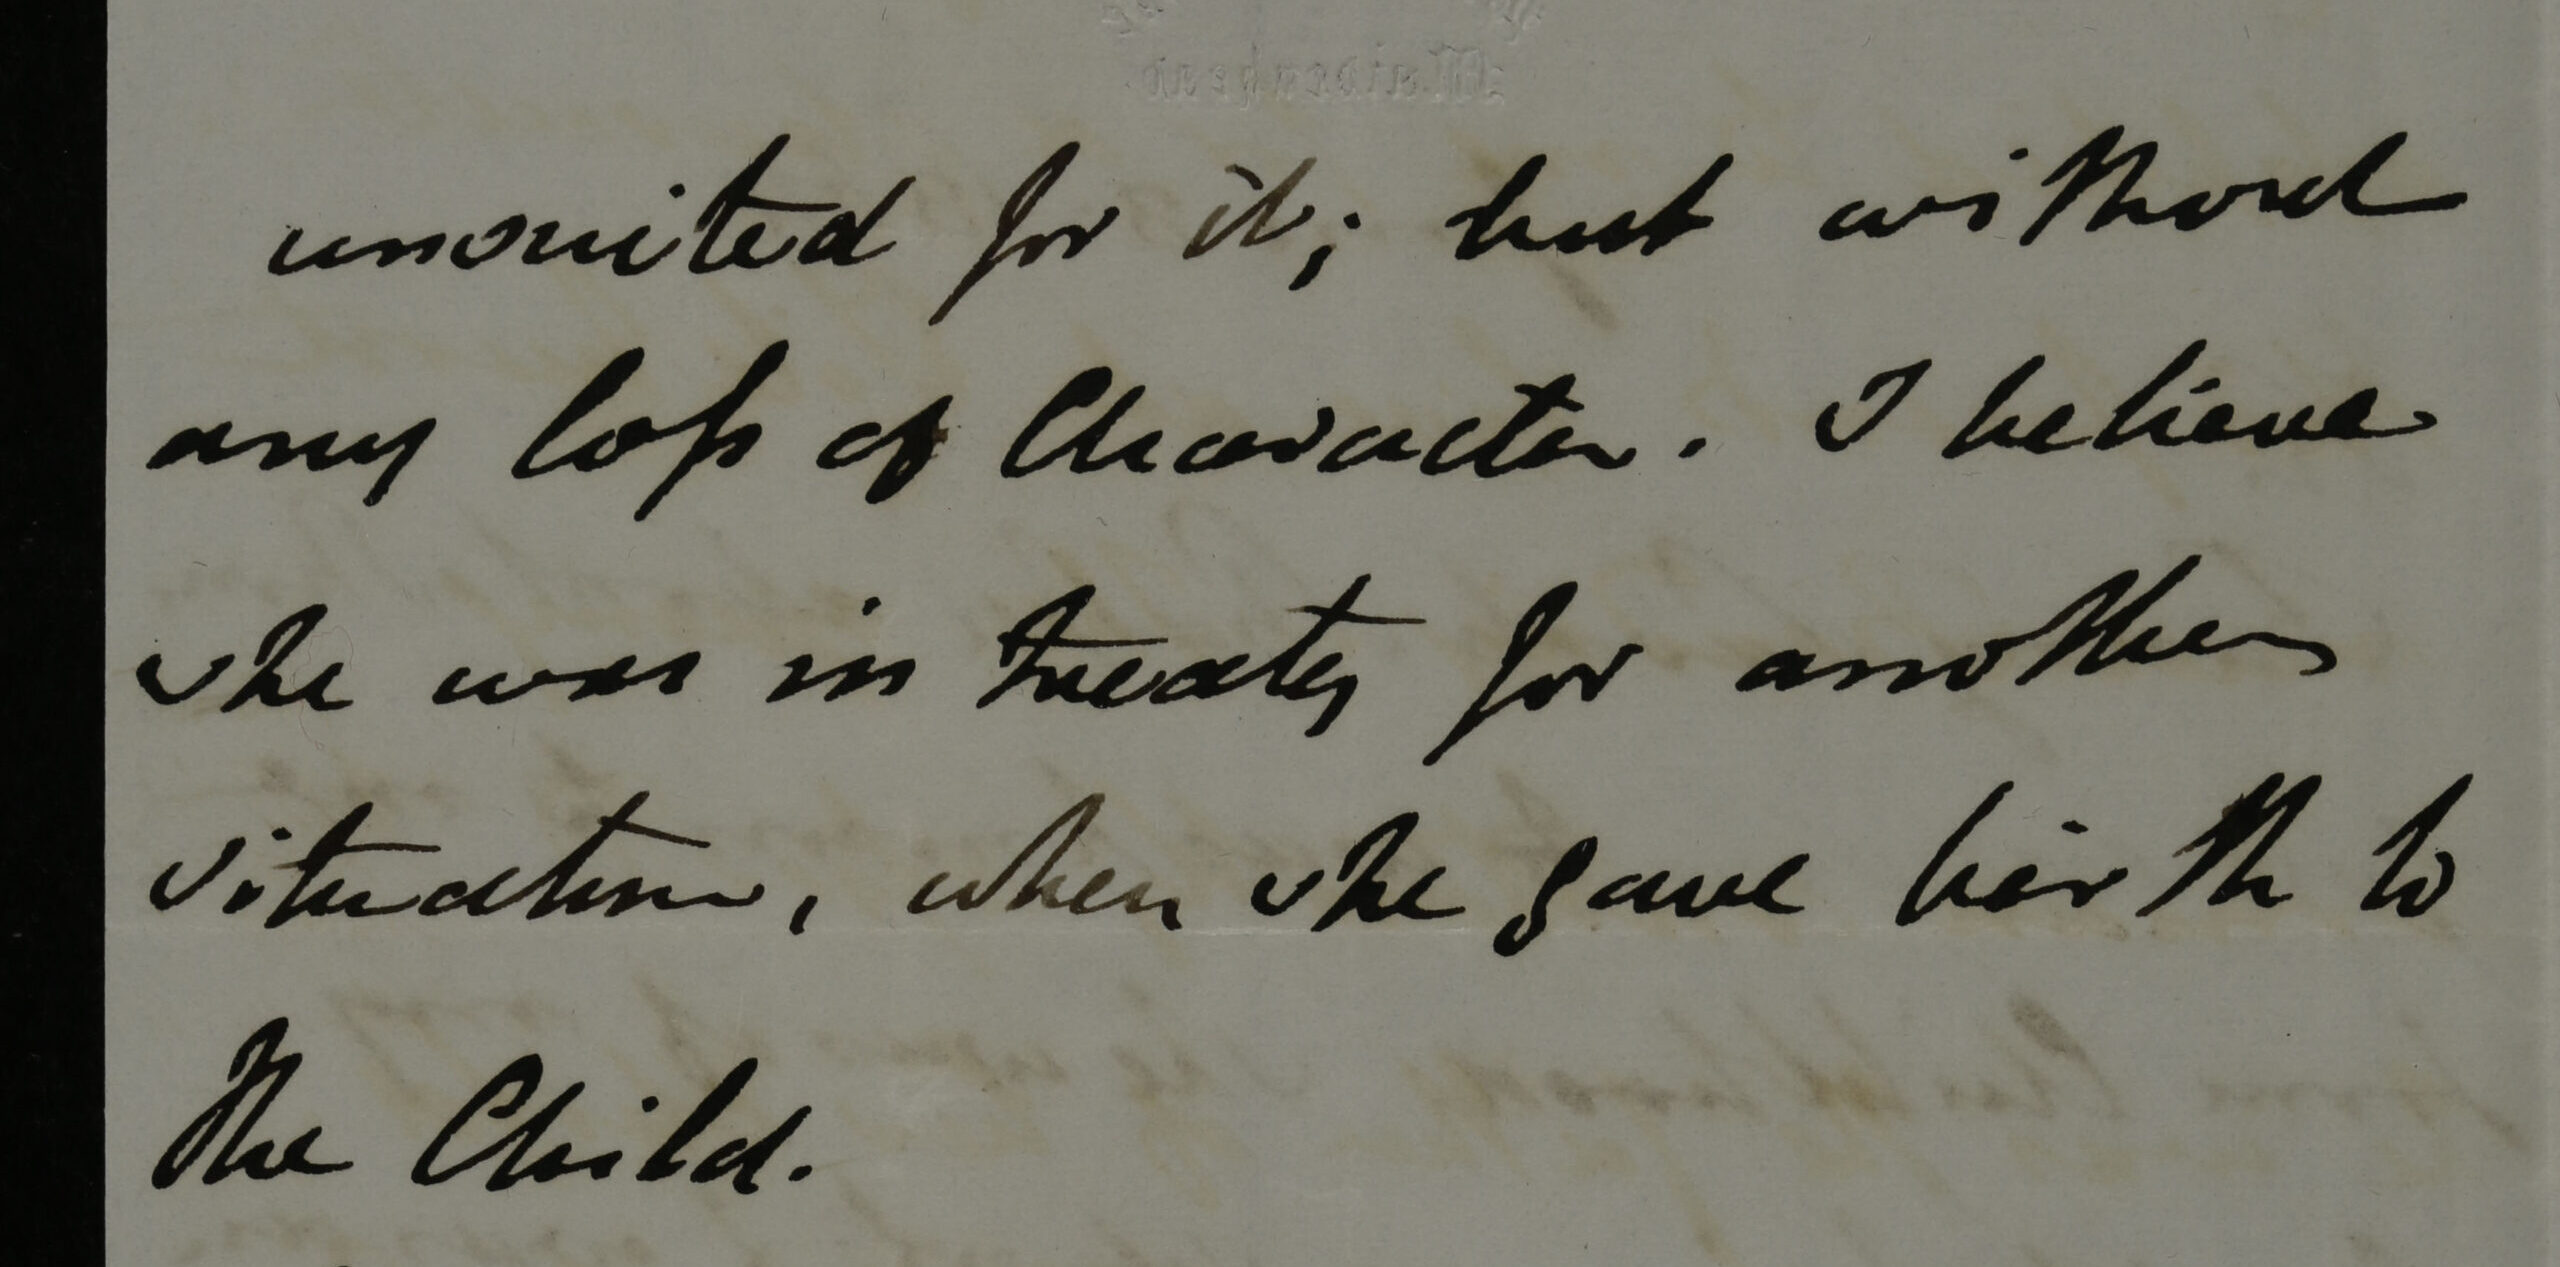 Maidenhead
unsuited for it; but without
any loss of Character. I believe
she was in treaty for another
situation, when she gave birth to
the Child.